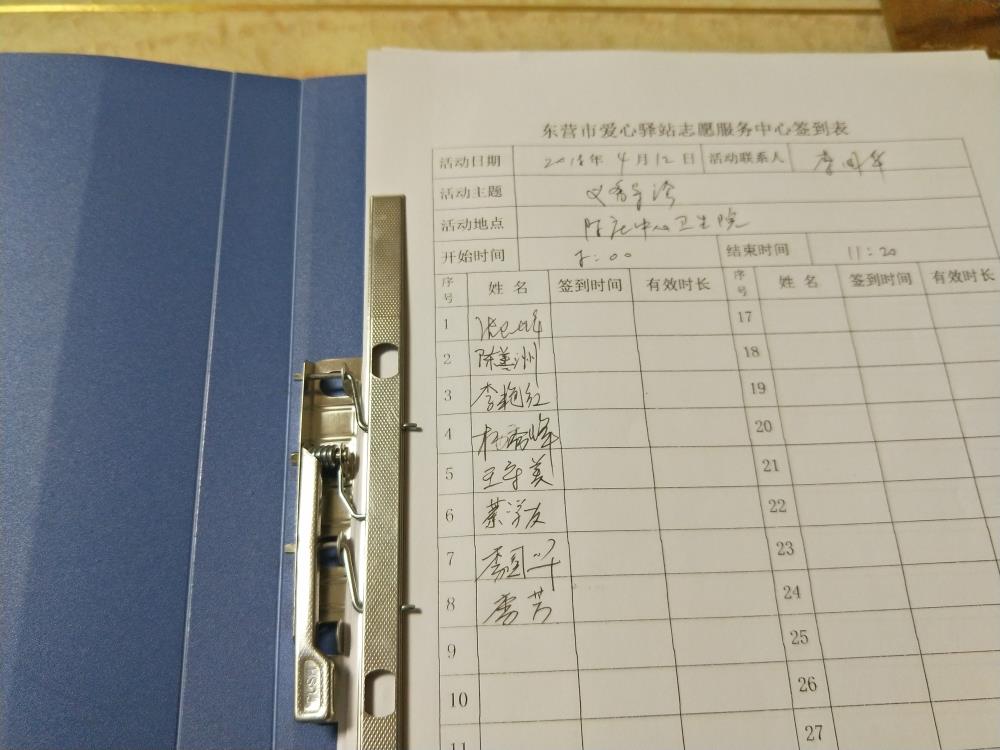 东营市爱心驿站志愿服务中心签到表
活动日期 2018年 4月12日 活动联系人
活动主题
活动地点 陈庄中心卫生院
开始时间 8:00 结束时间 11:20
序号 姓名 签到时间 有效时长 序号 姓名 签到时间 有效时长
1 17
2 陈美洲 18
3 李艳红 19
4 20
5 王守美 21
6 蔡学友 22
7 李国华 23
8 李芳 24
9 25
10 26
11 27
PUSH